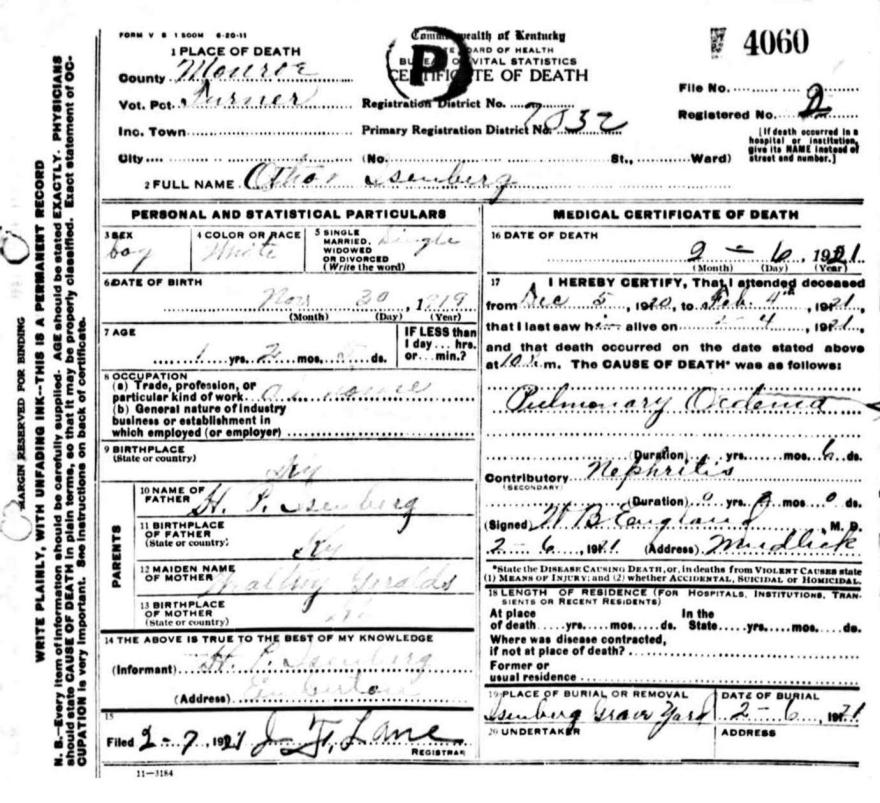 FORM V S 1 500M 6-20-11
Commonwealth of Kentucky
STATE BOARD OF HEALTH
BUREAU OF VITAL STATISTICS
CERTIFICATE OF DEATH
P
4060
1 PLACE OF DEATH
County Monroe
Vot. Pct. Turner
Inc. Town
City (No. St., Ward)
Registration District No.
Primary Registration District No. 7832
File No.
Registered No. 2
[If death occurred in a hospital or institution, give its NAME instead of street and number.]
2 FULL NAME Othor Isenberg
MARGIN RESERVED FOR BINDING
WRITE PLAINLY, WITH UNFADING INK--THIS IS A PERMANENT RECORD
N. B.--Every item of information should be carefully supplied. AGE should be stated EXACTLY. PHYSICIANS
should state CAUSE OF DEATH in plain terms, so that it may be properly classified. Exact statement of OC-
CUPATION is very important. See instructions on back of certificate.
PERSONAL AND STATISTICAL PARTICULARS
3 SEX
boy
4 COLOR OR RACE
White
5 SINGLE
MARRIED,
WIDOWED
OR DIVORCED
(Write the word)
Single
6 DATE OF BIRTH
Nov 30, 1919
(Month) (Day) (Year)
7 AGE
1 yrs. 2 mos. ds.
IF LESS than
1 day... hrs.
or... min.?
8 OCCUPATION
(a) Trade, profession, or
particular kind of work at home
(b) General nature of industry
business or establishment in
which employed (or employer)
9 BIRTHPLACE
(State or country)
Ky
PARENTS
10 NAME OF
FATHER
H. P. Isenberg
11 BIRTHPLACE
OF FATHER
(State or country)
Ky
12 MAIDEN NAME
OF MOTHER
Geralds
13 BIRTHPLACE
OF MOTHER
(State or country)
Ky
14 THE ABOVE IS TRUE TO THE BEST OF MY KNOWLEDGE
(Informant) H. P. Isenberg
(Address) Emberton
15
Filed 2-7, 1921 J. F. Lane
REGISTRAR
11-3184
MEDICAL CERTIFICATE OF DEATH
16 DATE OF DEATH
2 - 6, 1921
(Month) (Day) (Year)
17 I HEREBY CERTIFY, That I attended deceased
from Dec 5, 1920, to Feb. 4th, 1921,
that I last saw him alive on 2-4, 1921,
and that death occurred on the date stated above
at 10 m. The CAUSE OF DEATH* was as follows:
Pulmonary Oedema
(Duration) yrs. mos. 6 ds.
Contributory Nephritis
(SECONDARY)
(Duration) 0 yrs. 0 mos. 0 ds.
(Signed) W B England, M. D.
2-6, 1921 (Address) Mudlick
*State the DISEASE CAUSING DEATH, or, in deaths from VIOLENT CAUSES state
(1) MEANS OF INJURY; and (2) whether ACCIDENTAL, SUICIDAL or HOMICIDAL.
18 LENGTH OF RESIDENCE (FOR HOSPITALS, INSTITUTIONS, TRAN-
SIENTS OR RECENT RESIDENTS)
At place In the
of death yrs. mos. ds. State yrs. mos. ds.
Where was disease contracted,
if not at place of death?
Former or
usual residence
19 PLACE OF BURIAL OR REMOVAL
Isenberg Grave Yard
DATE OF BURIAL
2-6, 1921
20 UNDERTAKER
ADDRESS